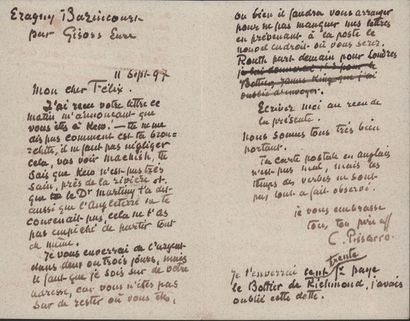 Eragny Bazincourt
par Gisors Eure
11 Sept 97
Mon cher Félix.
J'ai reçu votre lettre ce
matin m'annonçant que
vous êtes à Kew. — tu ne
dis pas comment est ta bron-
chite, il ne faut pas négliger
cela, vas voir
sais que Kew n'est pas très
sain, près de la rivière et
que le Dr Martiny t'a dit
aussi que l'Angleterre ne te
convenait pas, cela ne t'as
pas empêché de partir tout
de même.
Je vous enverrai de l'argent
dans deux ou trois jours, mais
il faut que je sois sur de votre
adresse, car vous n'êtes pas
sur de rester où vous êtes,
ou bien il faudra vous arranger
pour ne pas manquer mes lettres
en prévenant à la poste le
nouvel endroit où vous serez.
part demain pour Londres
je lui donnerai
Bottier que j'ai
oublié
Ecrivez moi au recu de
la présente.
nous somms tous très bien
portant.
Ta carte postale en anglais
n'est pas mal, mais les
temps des verbes ne sont
pas tout à fait observé.
je vous embrasse
tous, ton père aff
C. Pissarro
trente
Je t'enverrai cent f. paye
le Bottier de Richmond, j'avais
oublié cette dette.